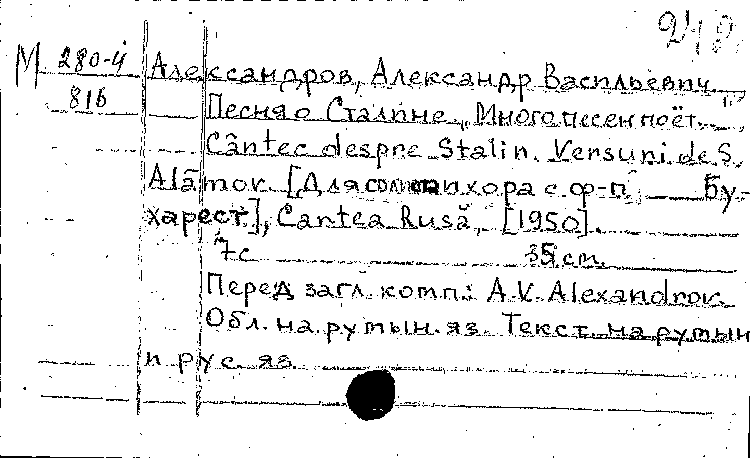 248.
М 280-4 Александров, Александр Васильевич.
816 Песня о Сталине „Много песен поёт..."
Cântec despre Stalin. Versuri de S.
Alâmov. [Для солистки хора с ф-п. Бу-
харест], Cartea Rusă, [1950].
7 с 35 см.
Перед загл. комп.: A. V. Alexandrov.
Обл. на румын. яз. Текст на румын
и рус. яз.